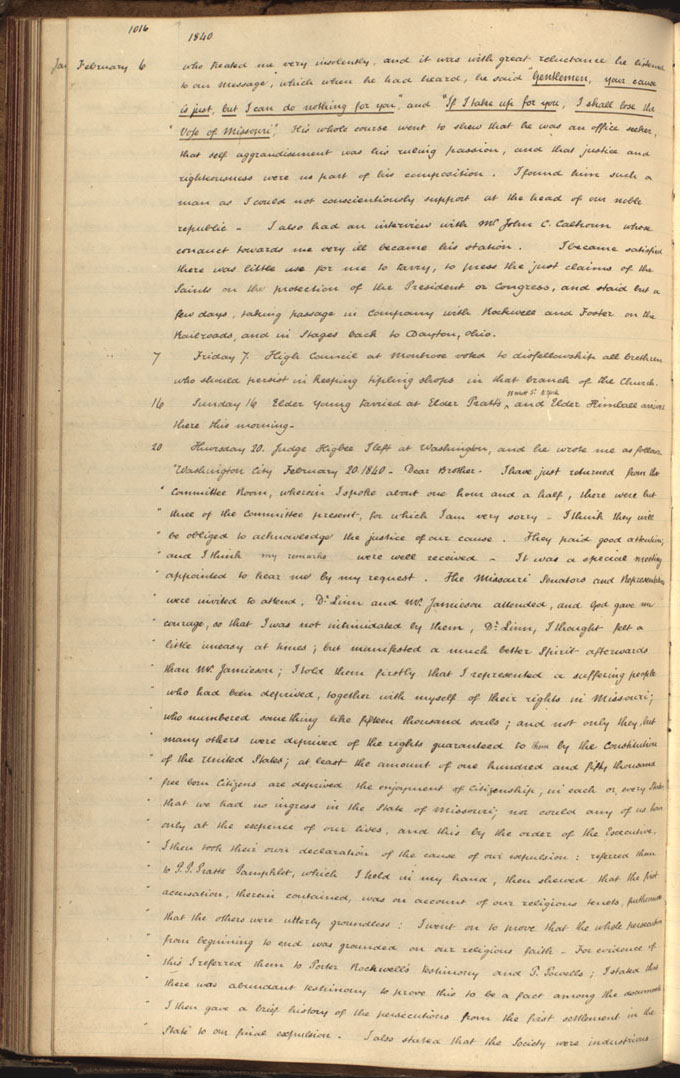 1016
1840
Jan February 6 who treated me very insolently, and it was with great reluctance he listened
to our message", which when he had heard, he said Gentlemen, your cause
is just, but I can do nothing for you", and "If I take up for you, I shall lose the
" Vote of Missouri". His whole course went to shew that he was an office seeker,
that self aggrandisement was his ruling passion, and that justice and
righteousness were no part of his composition. I found him such a
man as I could not conscientiously support at the head of our noble
republic – I also had an interview with Mr. John C. Calhoun whose
conduct towards me very ill became his station. I became satisfied
there was little use for me to tarry, to press the just claims of the
Saints on the protection of the President or Congress, and staid but a
few days, taking passage in company with Rockwell and Foster on the
Railroads, and in Stages back to Dayton, Ohio.
7 Friday 7. High Council at Montrose voted to disfellowship all brethren
who should persist in keeping tipling shops in that branch of the Church.
16 Sunday 16 Elder Young tarried at Elder Pratt's, and Elder Kimball arrived
there this morning –
20 Thursday 20. Judge Higbee I left at Washington, and he wrote me as follows
"Washington City February 20. 1840 – Dear Brother – I have just returned from the
" Committee Room, wherein I spoke about one hour and a half, there were but
" three of the Committee present, for which I am very sorry – I think they will
" be obliged to acknowledge the justice of our cause. They paid good attention,
" and I think my remarks were well received – It was a special meeting
" appointed to hear me by my request. The Missouri Senators and Representatives
" were invited to attend, Dr. Linn and Mr. Jamieson attended, and God gave me
" courage, so that I was not intimidated by them, Dr. Linn, I thought felt a
" little uneasy at times; but manifested a much better Spirit afterwards
" than Mr. Jamieson; I told them firstly that I represented a suffering people
" who had been deprived, together with myself of their rights in Missouri;
" who numbered something like fifteen thousand souls; and not only they, but
" many others were deprived of the rights guaranteed to them by the Constitution
" of the United States; at least the amount of one hundred and fifty thousand
" free born Citizens are deprived the enjoyment of citizenship, in each or every State
" that we had no ingress in the State of Missouri; nor could any of us have
" only at the expence of our lives, and this by the order of the Executive.
" I then took their own declaration of the cause of our expulsion: referred them
" to P. P. Pratts Pamphlet, which I held in my hand, then shewed that the first
" accusation, therein contained, was on account of our religious tenets, furthermore
" that the others were utterly groundless: I went on to prove that the whole persecution
" from beginning to end was grounded on our religious faith – For evidence of
" this I referred them to Porter Rockwell's testimony and P. Powells; I stated that
" there was abundant testimony to prove this to be a fact among the documents
" I then gave a brief history of the persecutions from the first settlement in the
" State to our final expulsion. I also stated that the Society were industrious